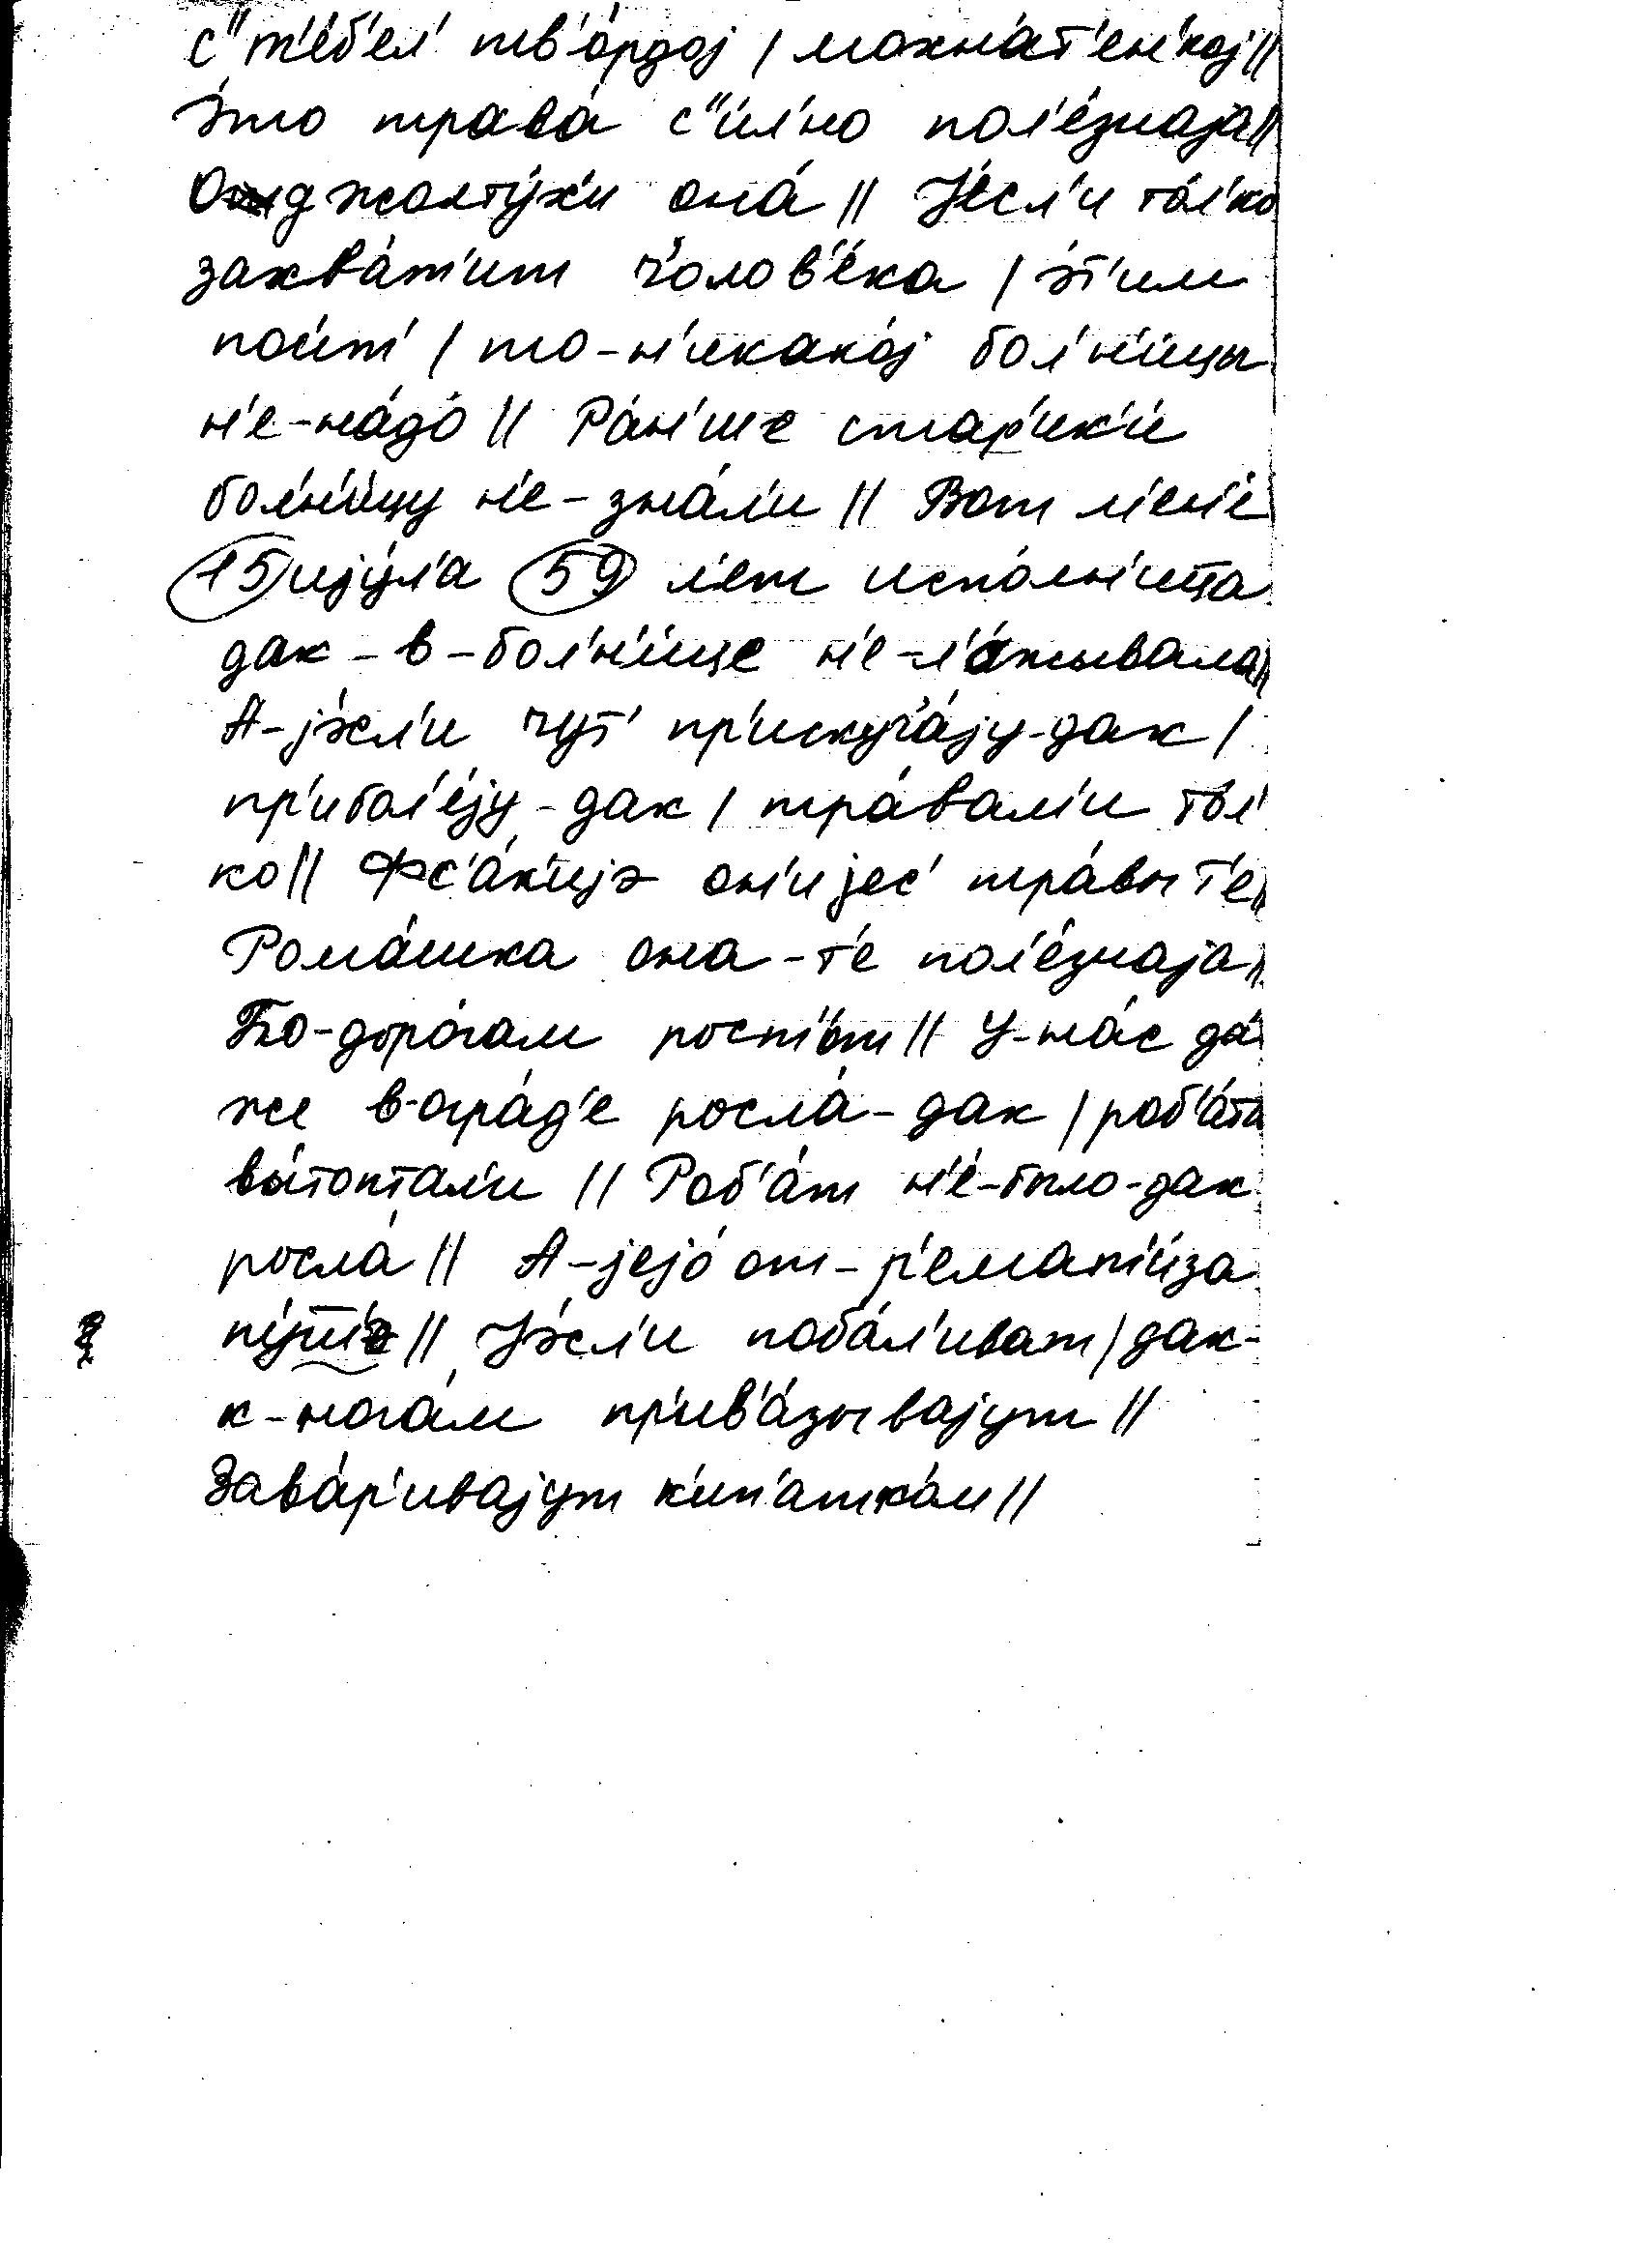 с"т'е́б'ел' тв'о́рдој / мохна́т'ен'кој //
э́то трава́ с"и́л'но пол'е́знаја //
Од жолту́х'и она́ // Йе́сл'и то́л'ко
захва́т'ит ч'олов'е́ка / э́т'им
пои́т' / то-н'икако́ј бол'н'и́цы
н'е-на́до // Ра́н'ше стар'ик'и́
бол'н'и́цу н'е-зна́л'и // Вот м'ен'е́
15 ију́л'а 59 л'ет испо́лн'ица
дак-в-бол'н'и́це н'е-л'о́жывала //
А-јэ́сл'и чут' пр'искуч'а́ју-дак /
пр'ибол'е́ју-дак / тра́вам'и то́л'
ко // Фс'а́к'ијэ он'и јес' тра́вы т'е //
Рома́шка она-т'е пол'е́знаја //
По-доро́гам рост'о́т // У-на́с да́
же в-огра́д'е росла́-дак / роб'а́та
вы́топтал'и // Роб'а́т н'е́-было-дак
росла́ // А-јејо́ от-р'емат'и́за
п'јут // Йэ́сл'и поба́л'иват / дак-
к-нога́м пр'ив'а́зывајут //
Зава́р'ивајут к'ип'атко́м //